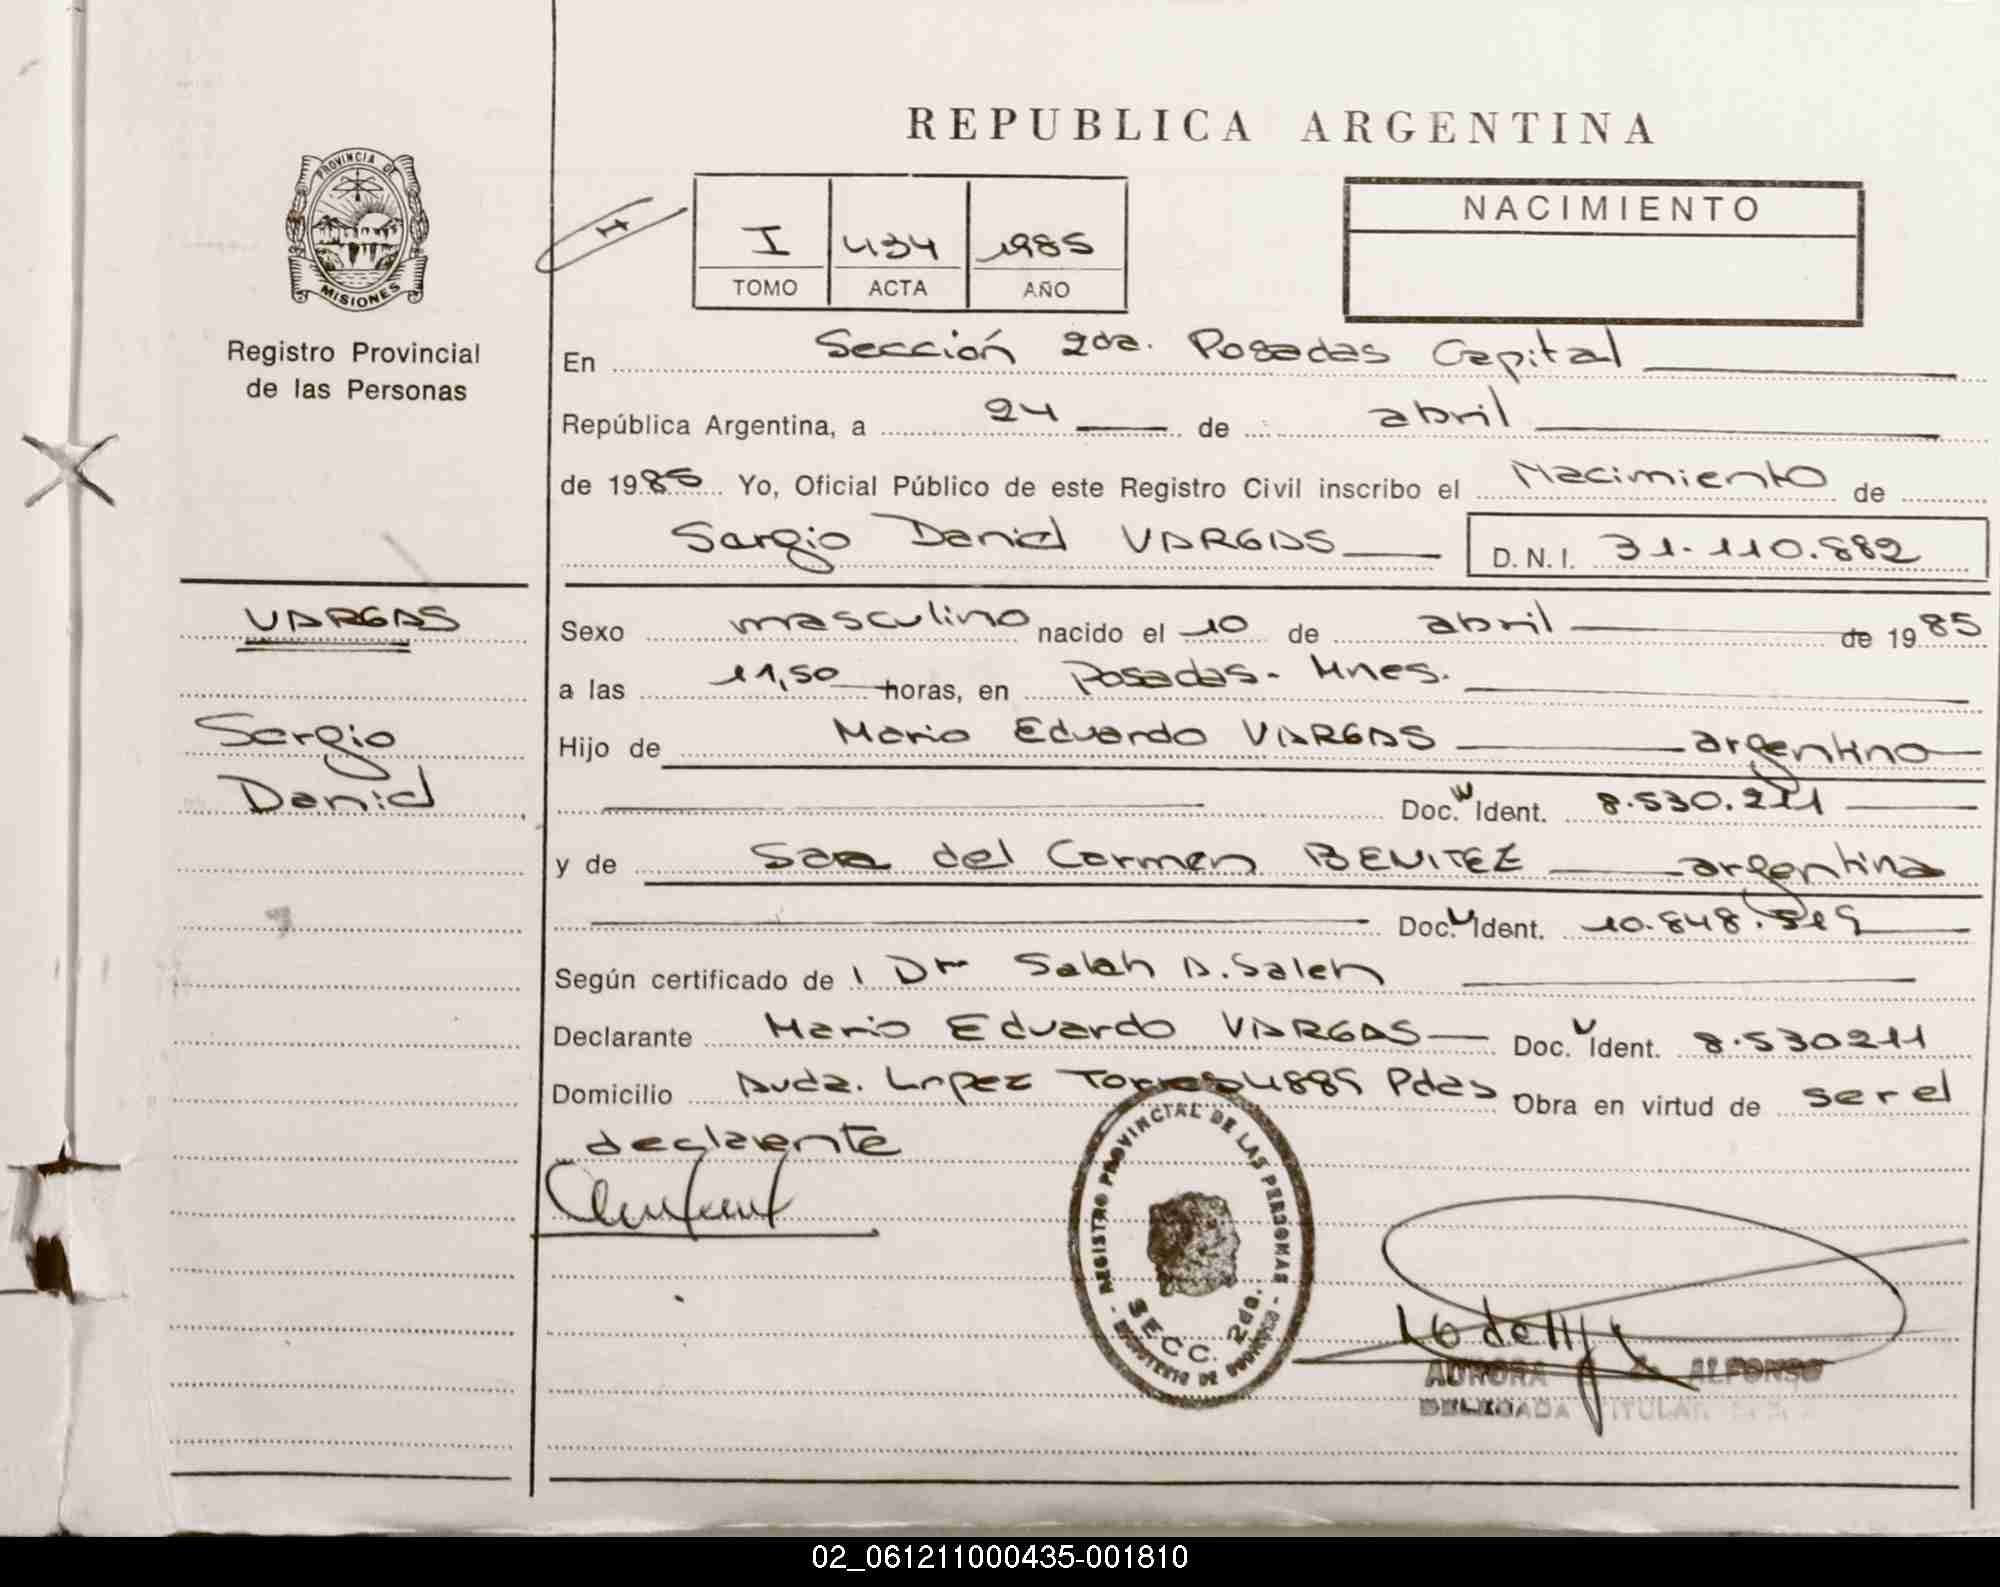 REPUBLICA ARGENTINA
PROVINCIA DE
MISIONES
Registro Provincial
de las Personas
I 434 1985
TOMO ACTA AÑO
NACIMIENTO
En Sección 2da. Posadas Capital
República Argentina, a 24 de abril
de 1985 Yo, Oficial Público de este Registro Civil inscribo el Nacimiento de
Sergio Daniel VARGAS D. N. I. 31.110.882
VARGAS
Sergio
Daniel
Sexo masculino nacido el 10 de abril de 1985
a las 11,50 horas, en Posadas - Mnes.
Hijo de Mario Eduardo VARGAS argentino
Doc. Ident. 8.530.211
y de del Carmen BENITEZ argentina
Doc. Ident. 10.848.519
Según certificado de Dr Salah A. Saleh
Declarante Mario Eduardo VARGAS Doc. Ident. 8.530211
Domicilio Avda. Lopez Torres 4889 Pdas Obra en virtud de ser el
declarante
REGISTRO PROVINCIAL DE LAS PERSONAS
SECC. 2da.
MINISTERIO DE GOBIERNO
AURORA ALFONSO
DELEGADA TITULAR
02_061211000435-001810